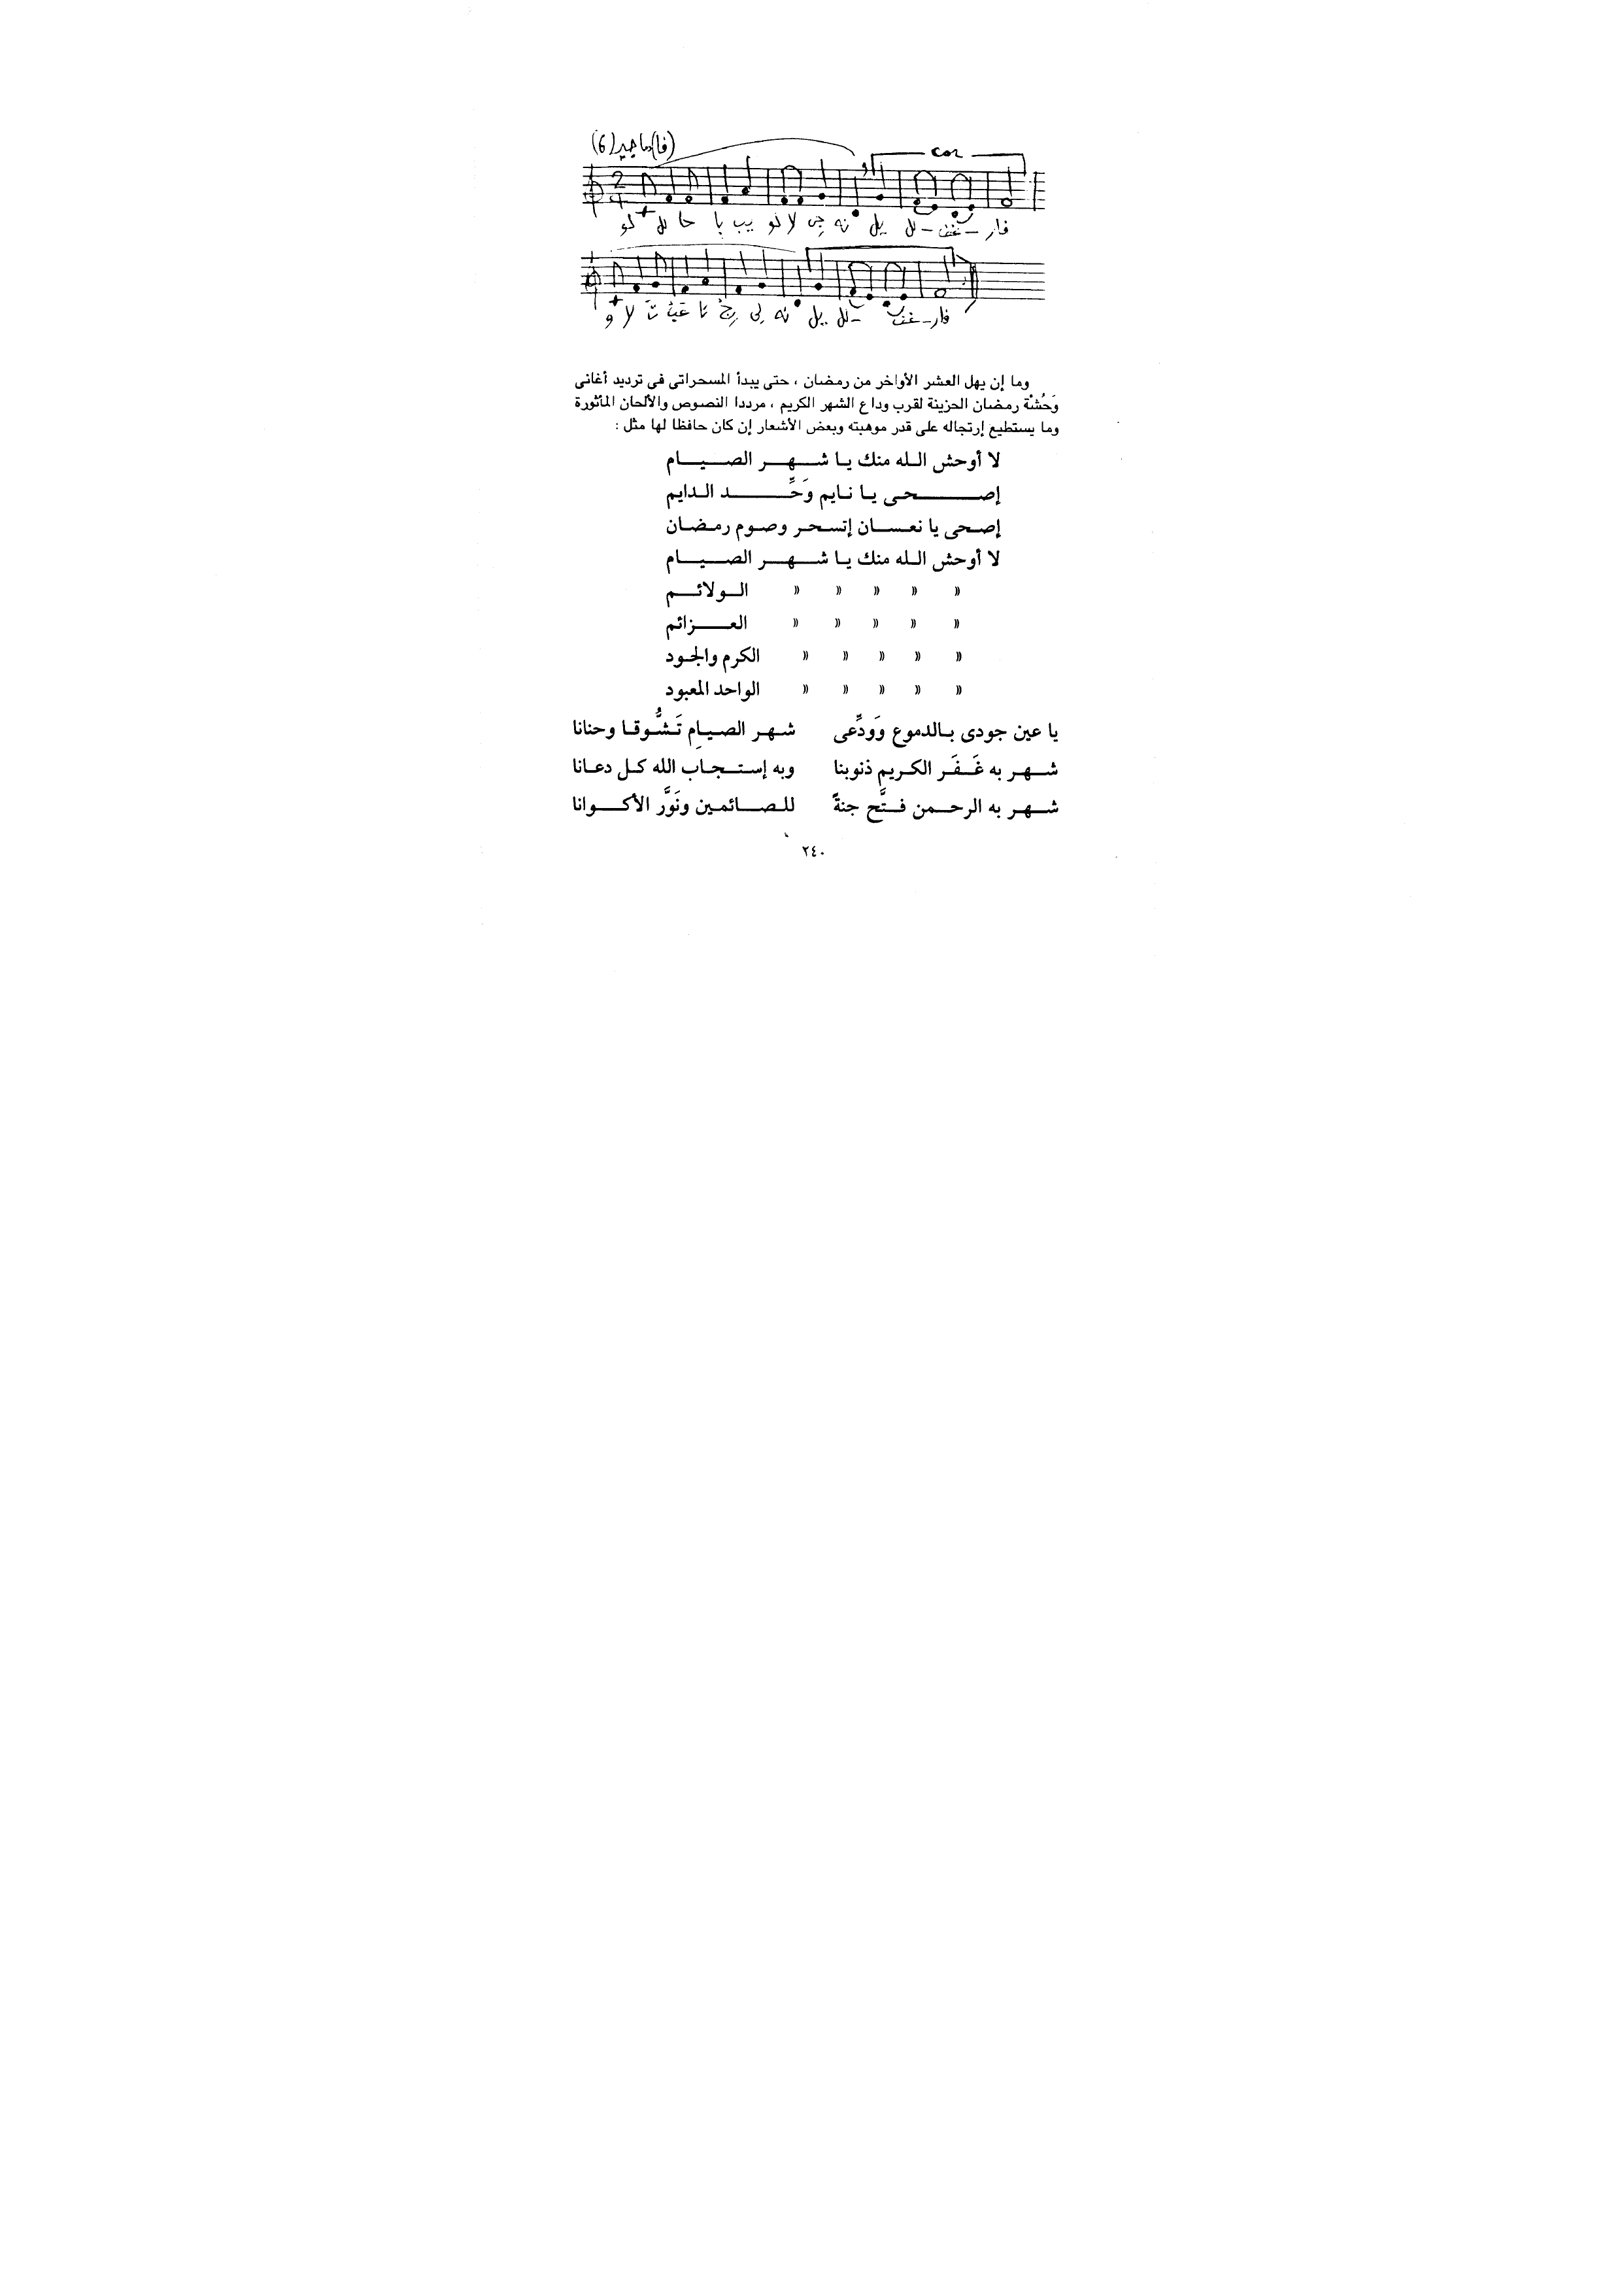 (فا) ماجير (6)
2
4
cor
وما إن يهل العشر الأواخر من رمضان ، حتى يبدأ المسحراتى فى ترديد أغانى
وَحُشْة رمضان الحزينة لقرب وداع الشهر الكريم ، مرددا النصوص والألحان المأثورة
وما يستطيع إرتجاله على قدر موهبته وبعض الأشعار إن كان حافظا لها مثل :
لا أوحش الله منك يا شهر الصيام
إصحى يا نايم وَحِّد الدايم
إصحى يا نعسان إتسحر وصوم رمضان
لا أوحش الله منك يا شهر الصيام
» » » » » الولائم
» » » » » العزائم
» » » » » الكرم والجود
» » » » » الواحد المعبود
يا عين جودى بالدموع وَودِّعى شهر الصيامِ تَشُّوقا وحنانا
شهر به غَفَر الكريم ذنوبنا وبه إستجاب الله كل دعانا
شهر به الرحمن فتَّح جنةً للصائمين ونَوَّر الأكوانا
٢٤٠